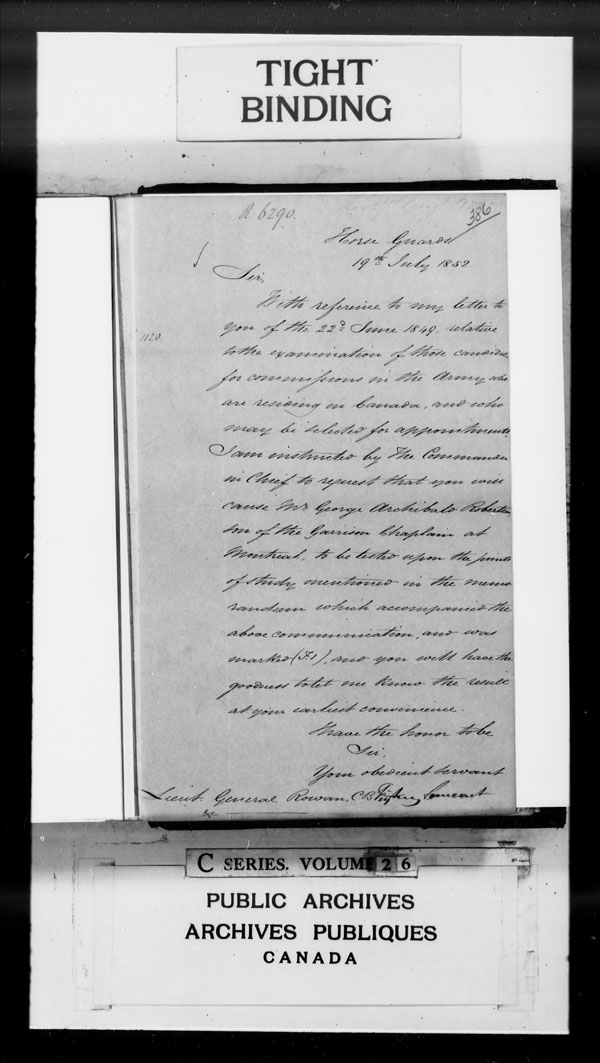 TIGHT
BINDING
R 6290.
386
Horse Guards
19th July 1852
Sir,
With reference to my letter to
you of the 22d June 1849, relative
1120
to the examination of those candidates
for commissions in the Army who
are residing in Canada, and who
may be selected for appointments,
I am instructed by The Commander
in Chief to request that you will
cause Mr George Archibald Robertson
son of the Garrison Chaplain at
Montreal, to be tested upon the points
of study mentioned in the memo
randum which accompanied the
above communication, and was
marked (F.1), and you will have the
goodness to let me know the result
at your earliest convenience.
I have the honor to be
Sir,
Your obedient servant
Lieut. General Rowan, C.B. Fitzroy Somerset
&c
C SERIES. VOLUME 26
PUBLIC ARCHIVES
ARCHIVES PUBLIQUES
CANADA